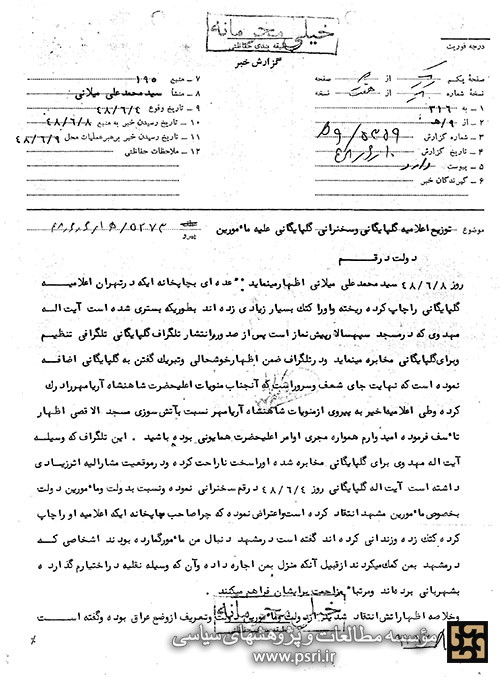 خیلی محرمانه
طبقه بندی حفاظتی
گزارش خبر
درجه فوریت
صفحه یکم از صفحه
نسخه شماره از هفت نسخه
۱ - به ۳۱۶
۲ - از ۹/ه
۳ - شماره گزارش
۴ - تاریخ گزارش
۵ - پیوست دارد
۶ - گیرندگان خبر
۷ - منبع ۱۹۵
۸ - منشأ سید محمد علی میلانی
۹ - تاریخ وقوع ۴۸/۶/۴
۱۰ - تاریخ رسیدن خبر به منبع ۴۸/۶/۸
۱۱ - تاریخ رسیدن خبر برهبر عملیات محل ۴۸/۶/۹
۱۲ - ملاحظات حفاظتی
موضوع توزیع اعلامیه گلپایگانی و سخنرانی گلپایگانی علیه مأمورین
دولت در قم
پیرو
روز ۴۸/۶/۸ سید محمد علی میلانی اظهار مینماید عده ای بچاپخانه ایکه در تهران اعلامیه
گلپایگانی را چاپ کرده ریخته و او را کتک بسیار زیادی زده اند بطوریکه بستری شده است آیت اله
مهدوی که در مسجد سپهسالار پیش نماز است پس از صدور و انتشار تلگراف گلپایگانی تلگرافی تنظیم
و برای گلپایگانی مخابره مینماید و در تلگراف ضمن اظهار خوشحالی و تبریک گفتن به گلپایگانی اضافه
نموده است که نهایت جای شعف و سرور است که آنجناب منویات اعلیحضرت شاهنشاه آریامهر را درک
کرده و طی اعلامیه اخیر به پیروی از منویات شاهنشاه آریامهر نسبت بآتش سوزی مسجد الاقصی اظهار
تأسف فرموده امیدوارم همواره مجری اوامر اعلیحضرت همایونی بوده باشید . این تلگراف که وسیله
آیت اله مهدوی برای گلپایگانی مخابره شده او را سخت ناراحت کرده و در موقعیت مشارالیه اثر زیادی
داشته است آیت اله گلپایگانی روز ۴۸/۶/۴ در قم سخنرانی نموده و نسبت بدولت و مأمورین دولت
بخصوص مأمورین مشهد انتقاد کرده است و اعتراض نموده که چرا صاحب چاپخانه ایکه اعلامیه او را چاپ
کرده کتک زده و زندانی کرده اند گفته است در مشهد دنبال من مأمور گمارده بودند اشخاصی که
در مشهد بمن کمک میکردند از قبیل آنکه منزل بمن اجاره داده و آن که وسیله نقلیه در اختیارم گذارده
بشهربانی برده اند و مرتبا مزاحمت برایشان فراهم میکنند .
و خلاصه اظهاراتش انتقاد شدید از دولت و مأمورین دولت و تعریف از وضع عراق بوده و گفته است
خیلی محرمانه
مؤسسه مطالعات و پژوهشهای سیاسی
www.psri.ir